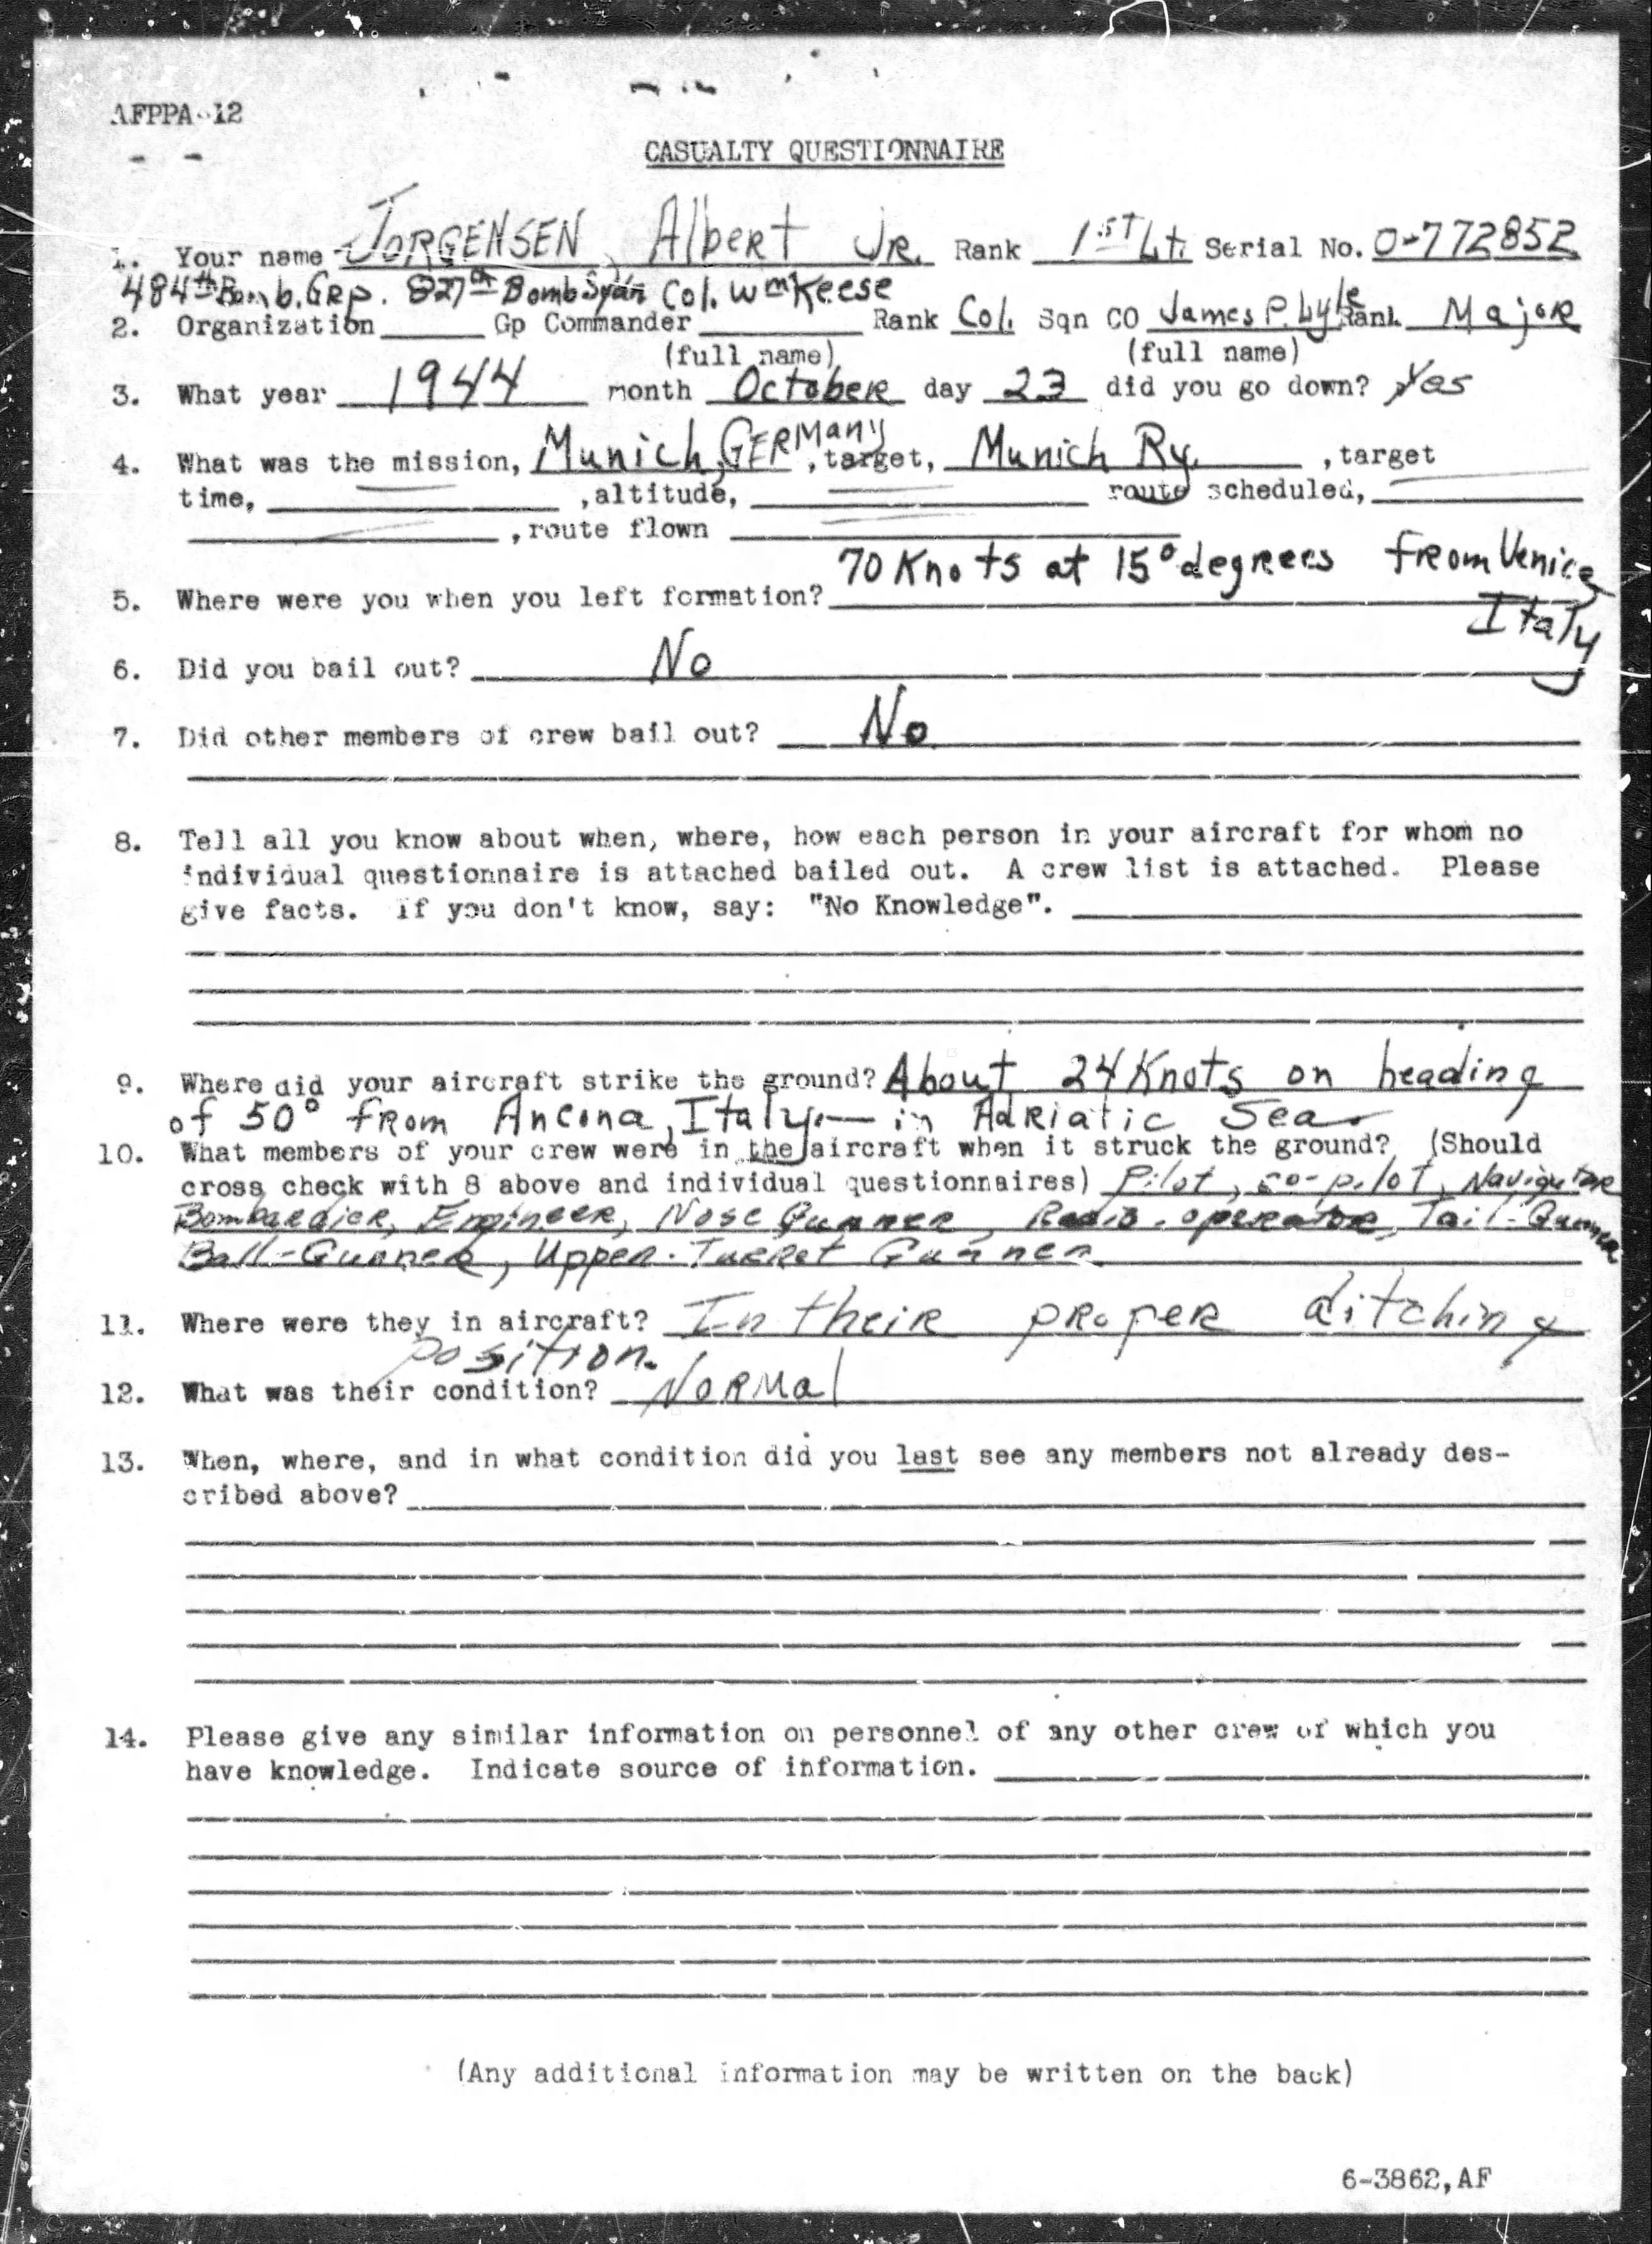 AFPPA-12
CASUALTY QUESTIONNAIRE
1. Your name JORGENSEN, Albert JR. Rank 1ST Lt. Serial No. O-772852
484th Bomb. GRP. 827th Bomb Sqdn Col. Wm Keese
2. Organization Gp Commander Rank Col. Sqn CO James P. Lyle Rank Major
(full name) (full name)
3. What year 1944 month October day 23 did you go down? Yes
4. What was the mission, Munich, GERMany, target, Munich Ry. , target
time, , altitude, route scheduled,
, route flown
70 Knots at 15° degrees from Venice
5. Where were you when you left formation?
Italy
6. Did you bail out? No
7. Did other members of crew bail out? No.
8. Tell all you know about when, where, how each person in your aircraft for whom no
individual questionnaire is attached bailed out. A crew list is attached. Please
give facts. If you don't know, say: "No Knowledge".
9. Where did your aircraft strike the ground? About 24 Knots on heading
of 50° from Ancona, Italy. — in Adriatic Sea
10. What members of your crew were in the aircraft when it struck the ground? (Should
cross check with 8 above and individual questionnaires) Pilot, co-pilot, Navigator
Bombardier, Engineer, Nose Gunner, Radio-operator, Tail-Gunner
Ball-Gunner, Upper-Turret Gunner
11. Where were they in aircraft? In their proper ditching
position.
12. What was their condition? Normal
13. When, where, and in what condition did you last see any members not already des-
cribed above?
14. Please give any similar information on personnel of any other crew of which you
have knowledge. Indicate source of information.
(Any additional information may be written on the back)
6-3862,AF